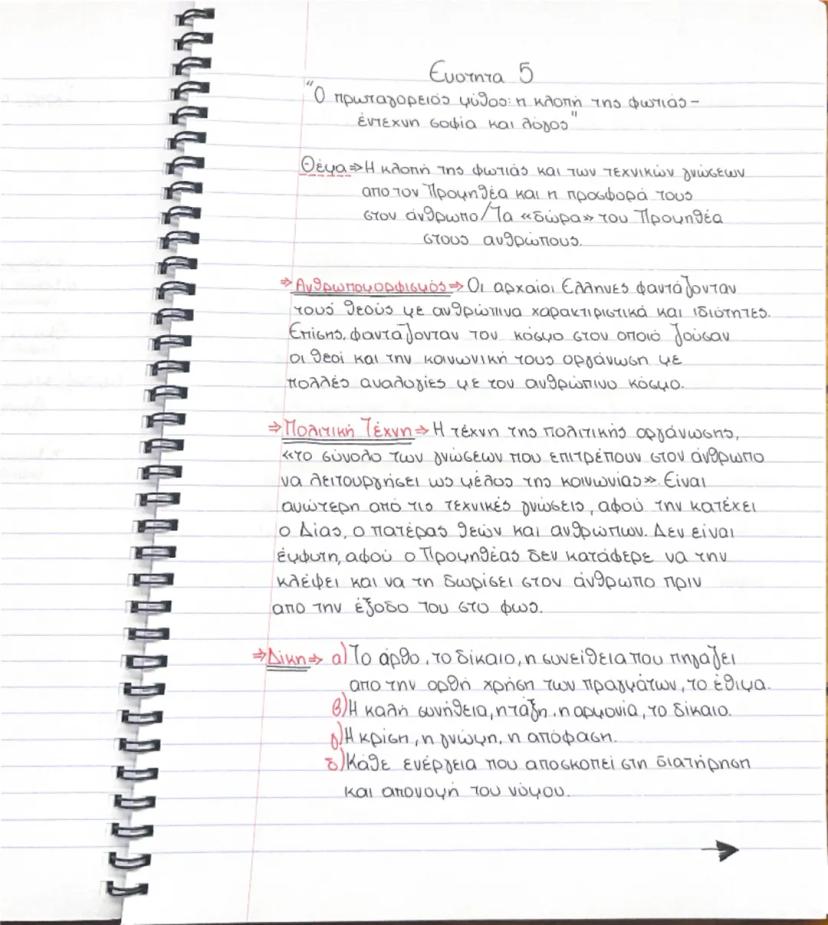 Ενότητα 5
"Ο πρωταγορειός μύθος: η κλοπή της φωτιάς -
έντεχνη σοφία και λόγος"
Θέμα⇒Η κλοπή της φωτιάς και των τεχνικών γνώσεων
απο τον Προμηθέα και η προσφορά τους
στον άνθρωπο/Τα «δώρα» του Προμηθέα
στους ανθρώπους.
⇒Ανθρωπομορφισμός⇒Οι αρχαίοι Ελληνες φαντάζονταν
τους θεούς με ανθρώπινα χαρακτιριστικά και ιδιότητες.
Επίσης, φαντάζονταν τον κόσμο στον οποιό ζούσαν
οι θεοί και την κοινωνική τους οργάνωση με
πολλές αναλογίες με τον ανθρώπινο κόσμο.
⇒Πολιτική Τέχνη⇒Η τέχνη της πολιτικής οργάνωσης,
«το σύνολο των γνώσεων που επιτρέπουν στον άνθρωπο
να λειτουργήσει ως μέλος της κοινωνίας». Είναι
ανώτερη από τις τεχνικές γνώσεις, αφού την κατέχει
ο Δίας, ο πατέρας θεών και ανθρώπων. Δεν είναι
έμφυτη, αφού ο Προμηθέας δεν κατάφερε να την
κλέψει και να τη δωρίσει στον άνθρωπο πριν
απο την έξοδο του στο φως.
⇒Δίκη⇒ α)Το άρθο, το δίκαιο, η συνείθεια που πηγάζει
απο την ορθή χρήση των πραγμάτων, το έθιμα.
β)Η καλή συνήθεια, η τάξη, η αρμονία, το δίκαιο.
γ)Η κρίση, η γνώμη, η απόφαση.
δ)Κάθε ενέργεια που αποσκοπεί στη διατήρηση
και απονομή του νόμου.